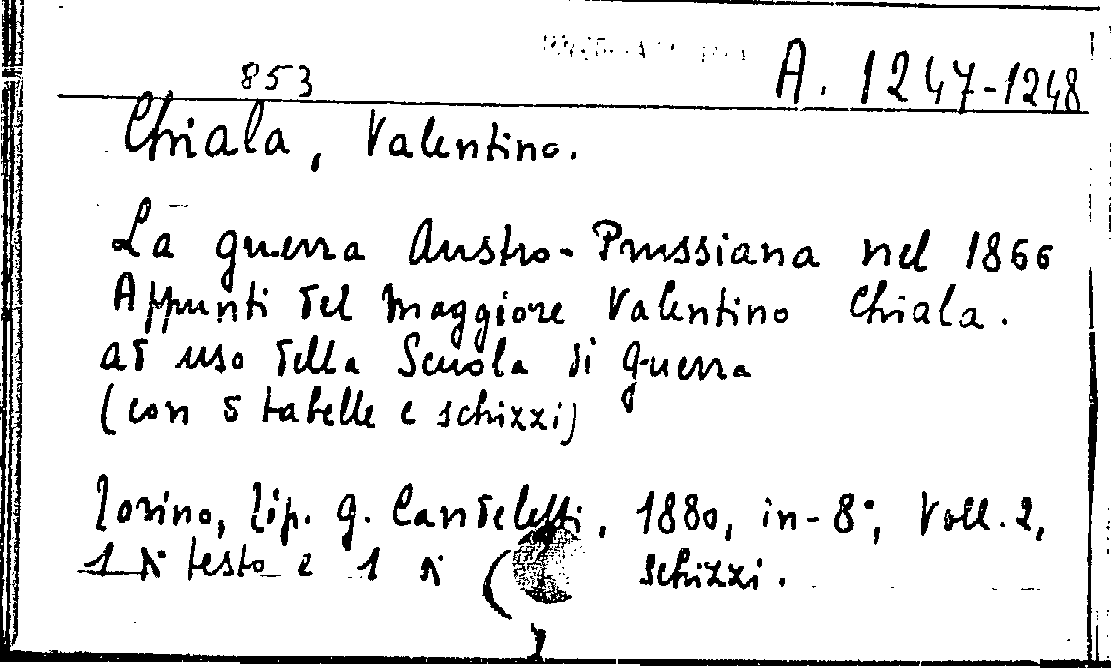 853
A. 1247-1248
Chiala, Valentino.
La guerra Austro-Prussiana nel 1866
Appunti del Maggiore Valentino Chiala.
ad uso della Scuola di guerra
(con 5 tabelle e schizzi)
Torino, Tip. G. Candeletti, 1880, in-8°, Voll. 2,
1 di testo e 1 di schizzi.